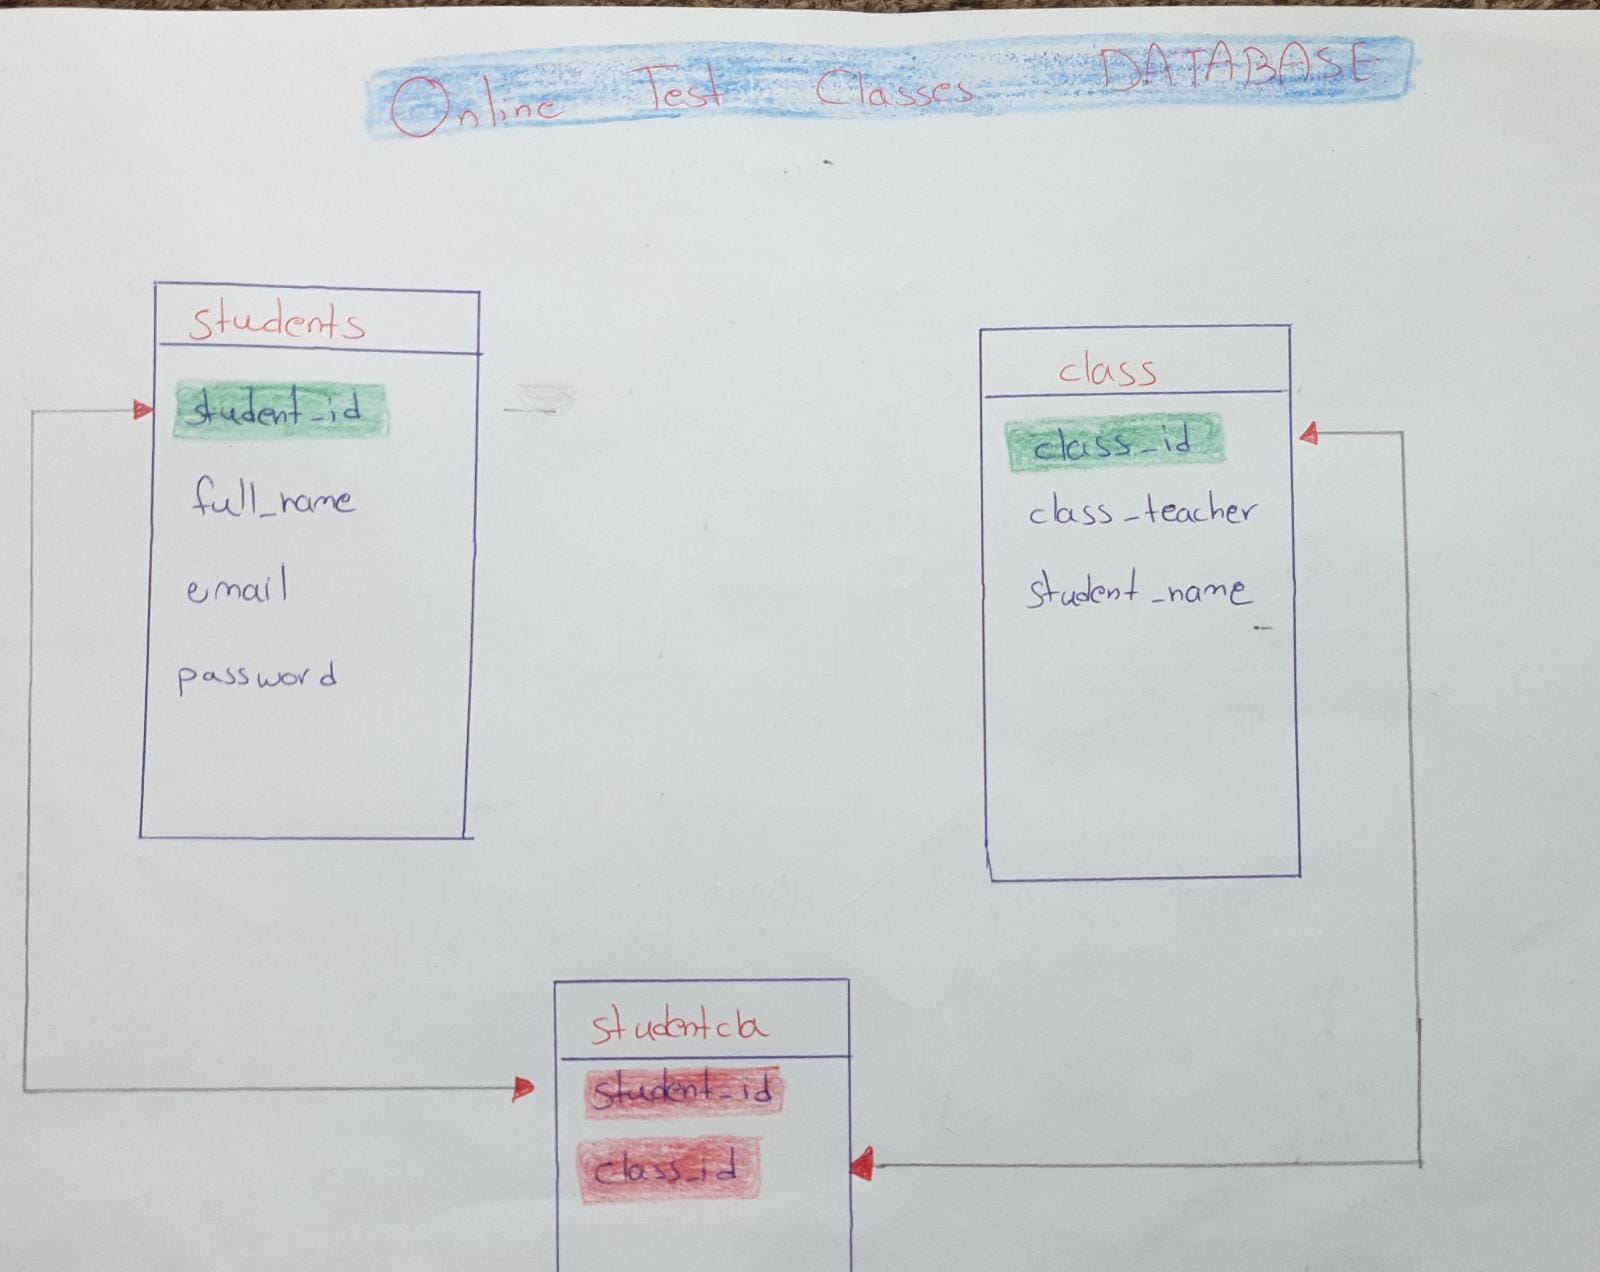 Online Test Classes DATABASE
students
student_id
full_name
email
password
class
class_id
class_teacher
student_name
studentcla
student_id
class_id